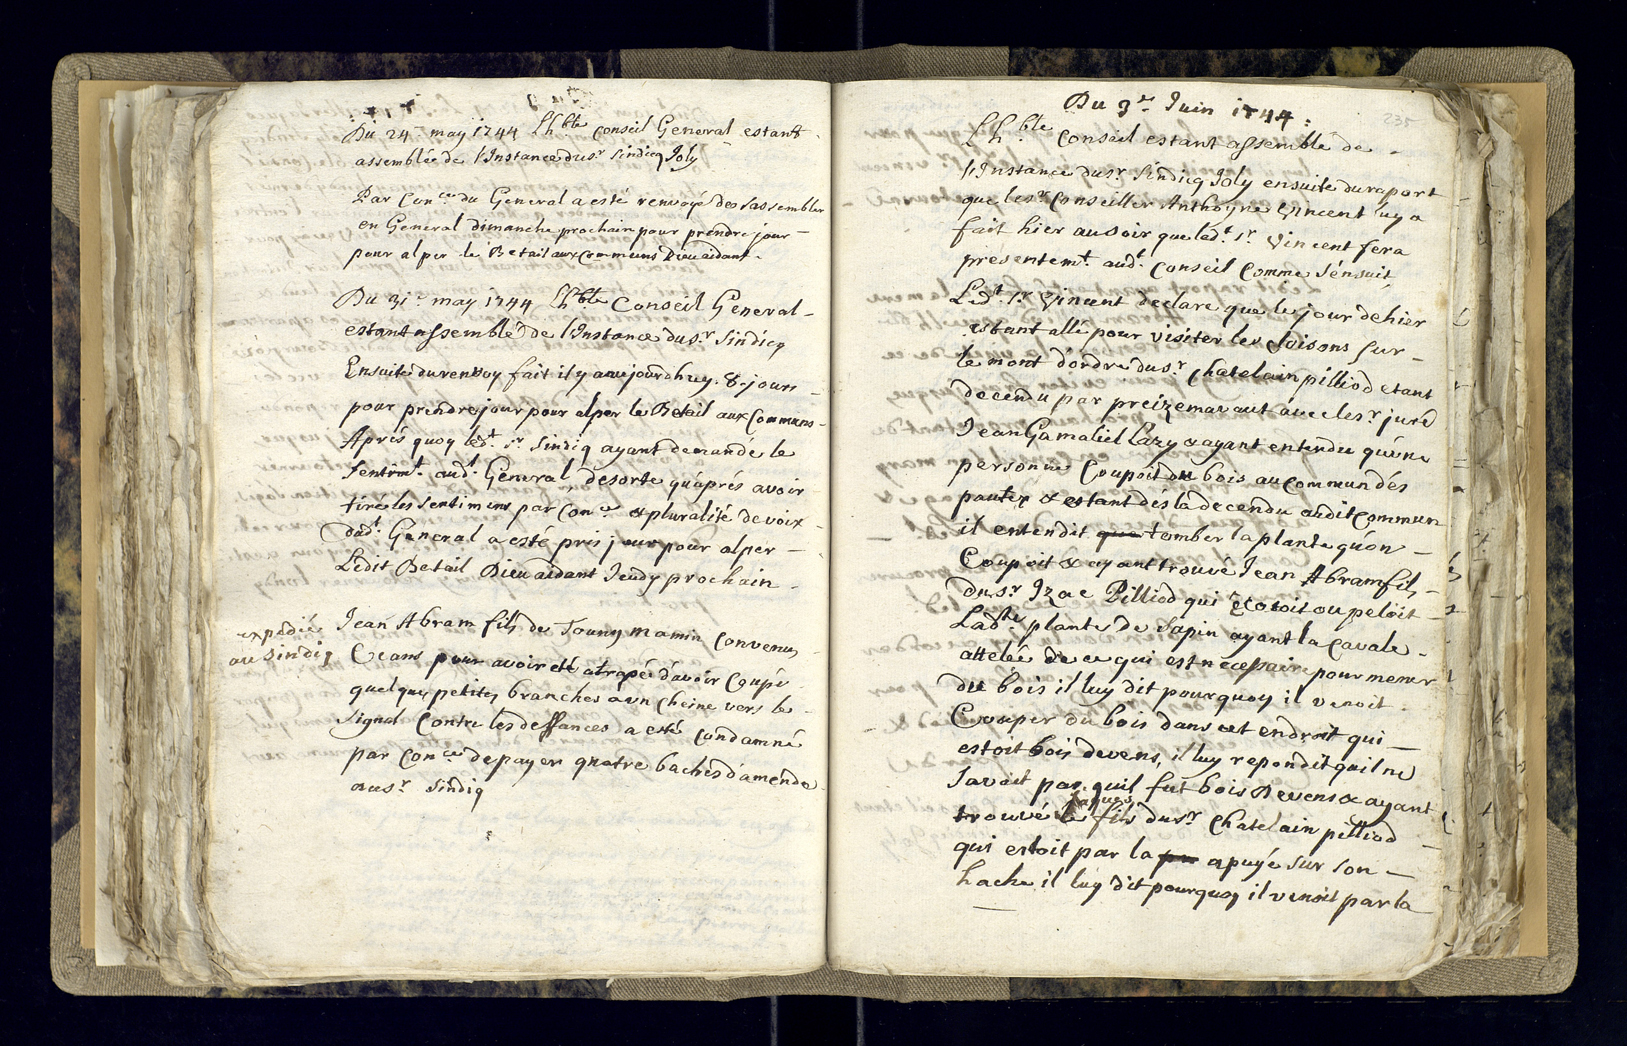 Du 24e may 1744 Lhble Conseil General estant
assemblée de l'Instance du sr Sindicq Joly
Par Conce du General a esté renvoyé de sassembler
en General dimanche prochain pour prendre jour
pour alper le Betail aux Communs Dieu aidant.
Du 31e may 1744 Lhble Conseil General
estant assemblé de l'Instance du sr Sindicq
Ensuite du renvoy fait il y a aujourdhuy 8 jours
pour prendre jour pour alper le Betail aux Communs
Aprés quoy ledt. sr Sindiq ayant demandé le
Sentimt. audt. General, desorte qu'aprés avoir
tiré les Sentiment par Conce & pluralité de voix
dudt. General a esté pris jour pour alper
Ledit Betail Dieu aidant Jeudy prochain
expédié
au sindiq
Jean Abram fils de Touny mamin Convenus
Ceans pour avoir eté atrapé d'avoir Coupé
quelques petites branches a un cheine vers le
Signal Contre les deffances a esté Condamné
par Conce de payer quatre baches d'amende
au sr. Sindiq
235
Du 3e Juin 1744:
Lhble Conseil estant assemblé de
l'Instance du sr. Sindicq Joly ensuite du raport
que le sr Conseiller Anthoyne Vincent luy a
fait hier au soir que ledt. sr. Vincent fera
presentemt. audt. Conseil Comme S'ensuit,
Ledt. sr Vincent declare que le jour de hier
estant allé pour visiter les Soisons sur
le mont d'ordre du sr. Chatelain pilliod etant
decendu par preizemavaut avec le sr. juré
Jean Gamaliel Cazy & ayant entendu qu'une
personne Coupoit du bois au Commun dés
pautex & estant dés la decendu audit Commun
il entendit que tomber la plante qu'on
Coupoit & ayant trouvé Jean Abram fils
du sr. Izac Pilliod qui ecotoit ou peloit
Ladte. plante de Sapin ayant la Cavale
attelée de ce qui est necessaire pour mener
du bois il luy dit pourquoy il venoit
Couper du bois dans cet endroit qui
estoit bois devens, il luy repondit quil ne
Savoit pas quil fut bois Devens & ayant
Jaques
trouvé le fils du sr Chatelain pilliod
qui estoit par la apuyé sur son
hache il luy dit pourquoy il venoit par la